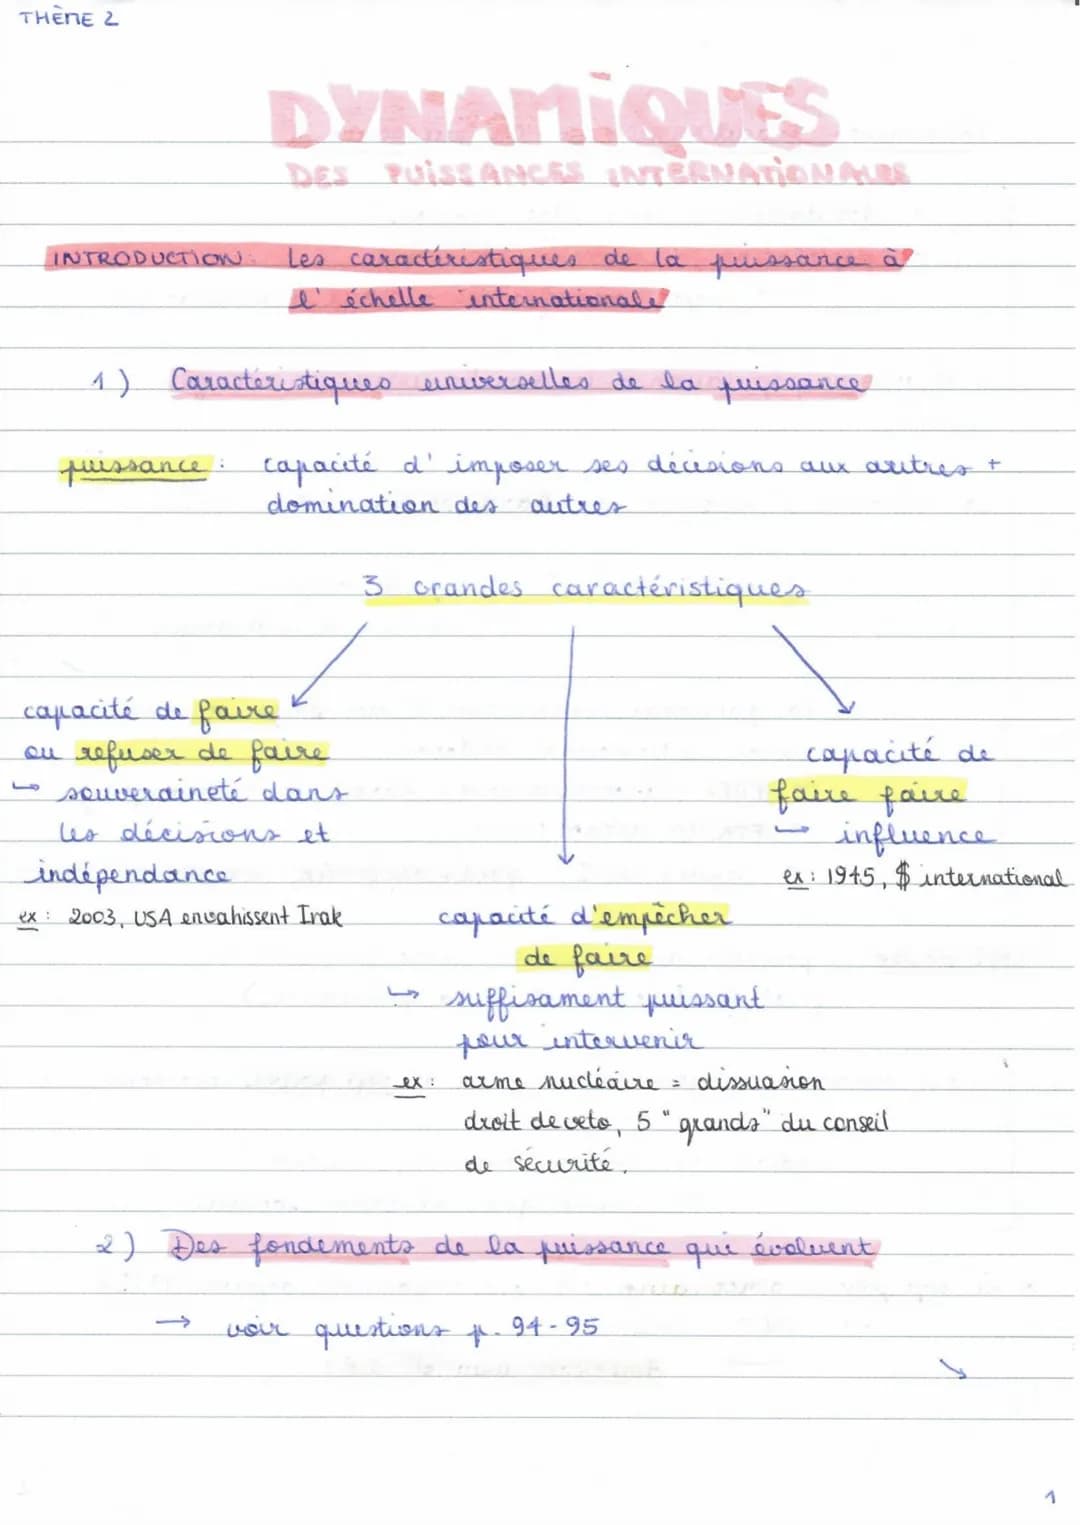 THÈME 2
DYNAMIQUES
DES PUISSANCES INTERNATIONALES
INTRODUCTION: Les caractéristiques de la puissance à
l'échelle internationale
1) Caractéristiques universelles de la puissance
puissance : capacité d'imposer ses décisions aux autres +
domination des autres
3 Grandes caractéristiques
capacité de faire
ou refuser de faire
↳ souveraineté dans
les décisions et
indépendance
ex : 2003, USA envahissent Irak
capacité d'empêcher
de faire
↳ suffisament puissant
pour intervenir
ex : arme nucléaire = dissuasion
droit de veto, 5 "grands" du conseil
de sécurité.
capacité de
faire faire
↳ influence
ex : 1945, $ international
2) Des fondements de la puissance qui évoluent
→ voir questions p. 94-95
1